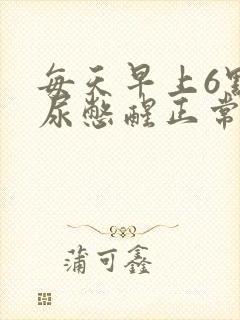 每天早上6点
尿憋醒正常
蒲可鑫